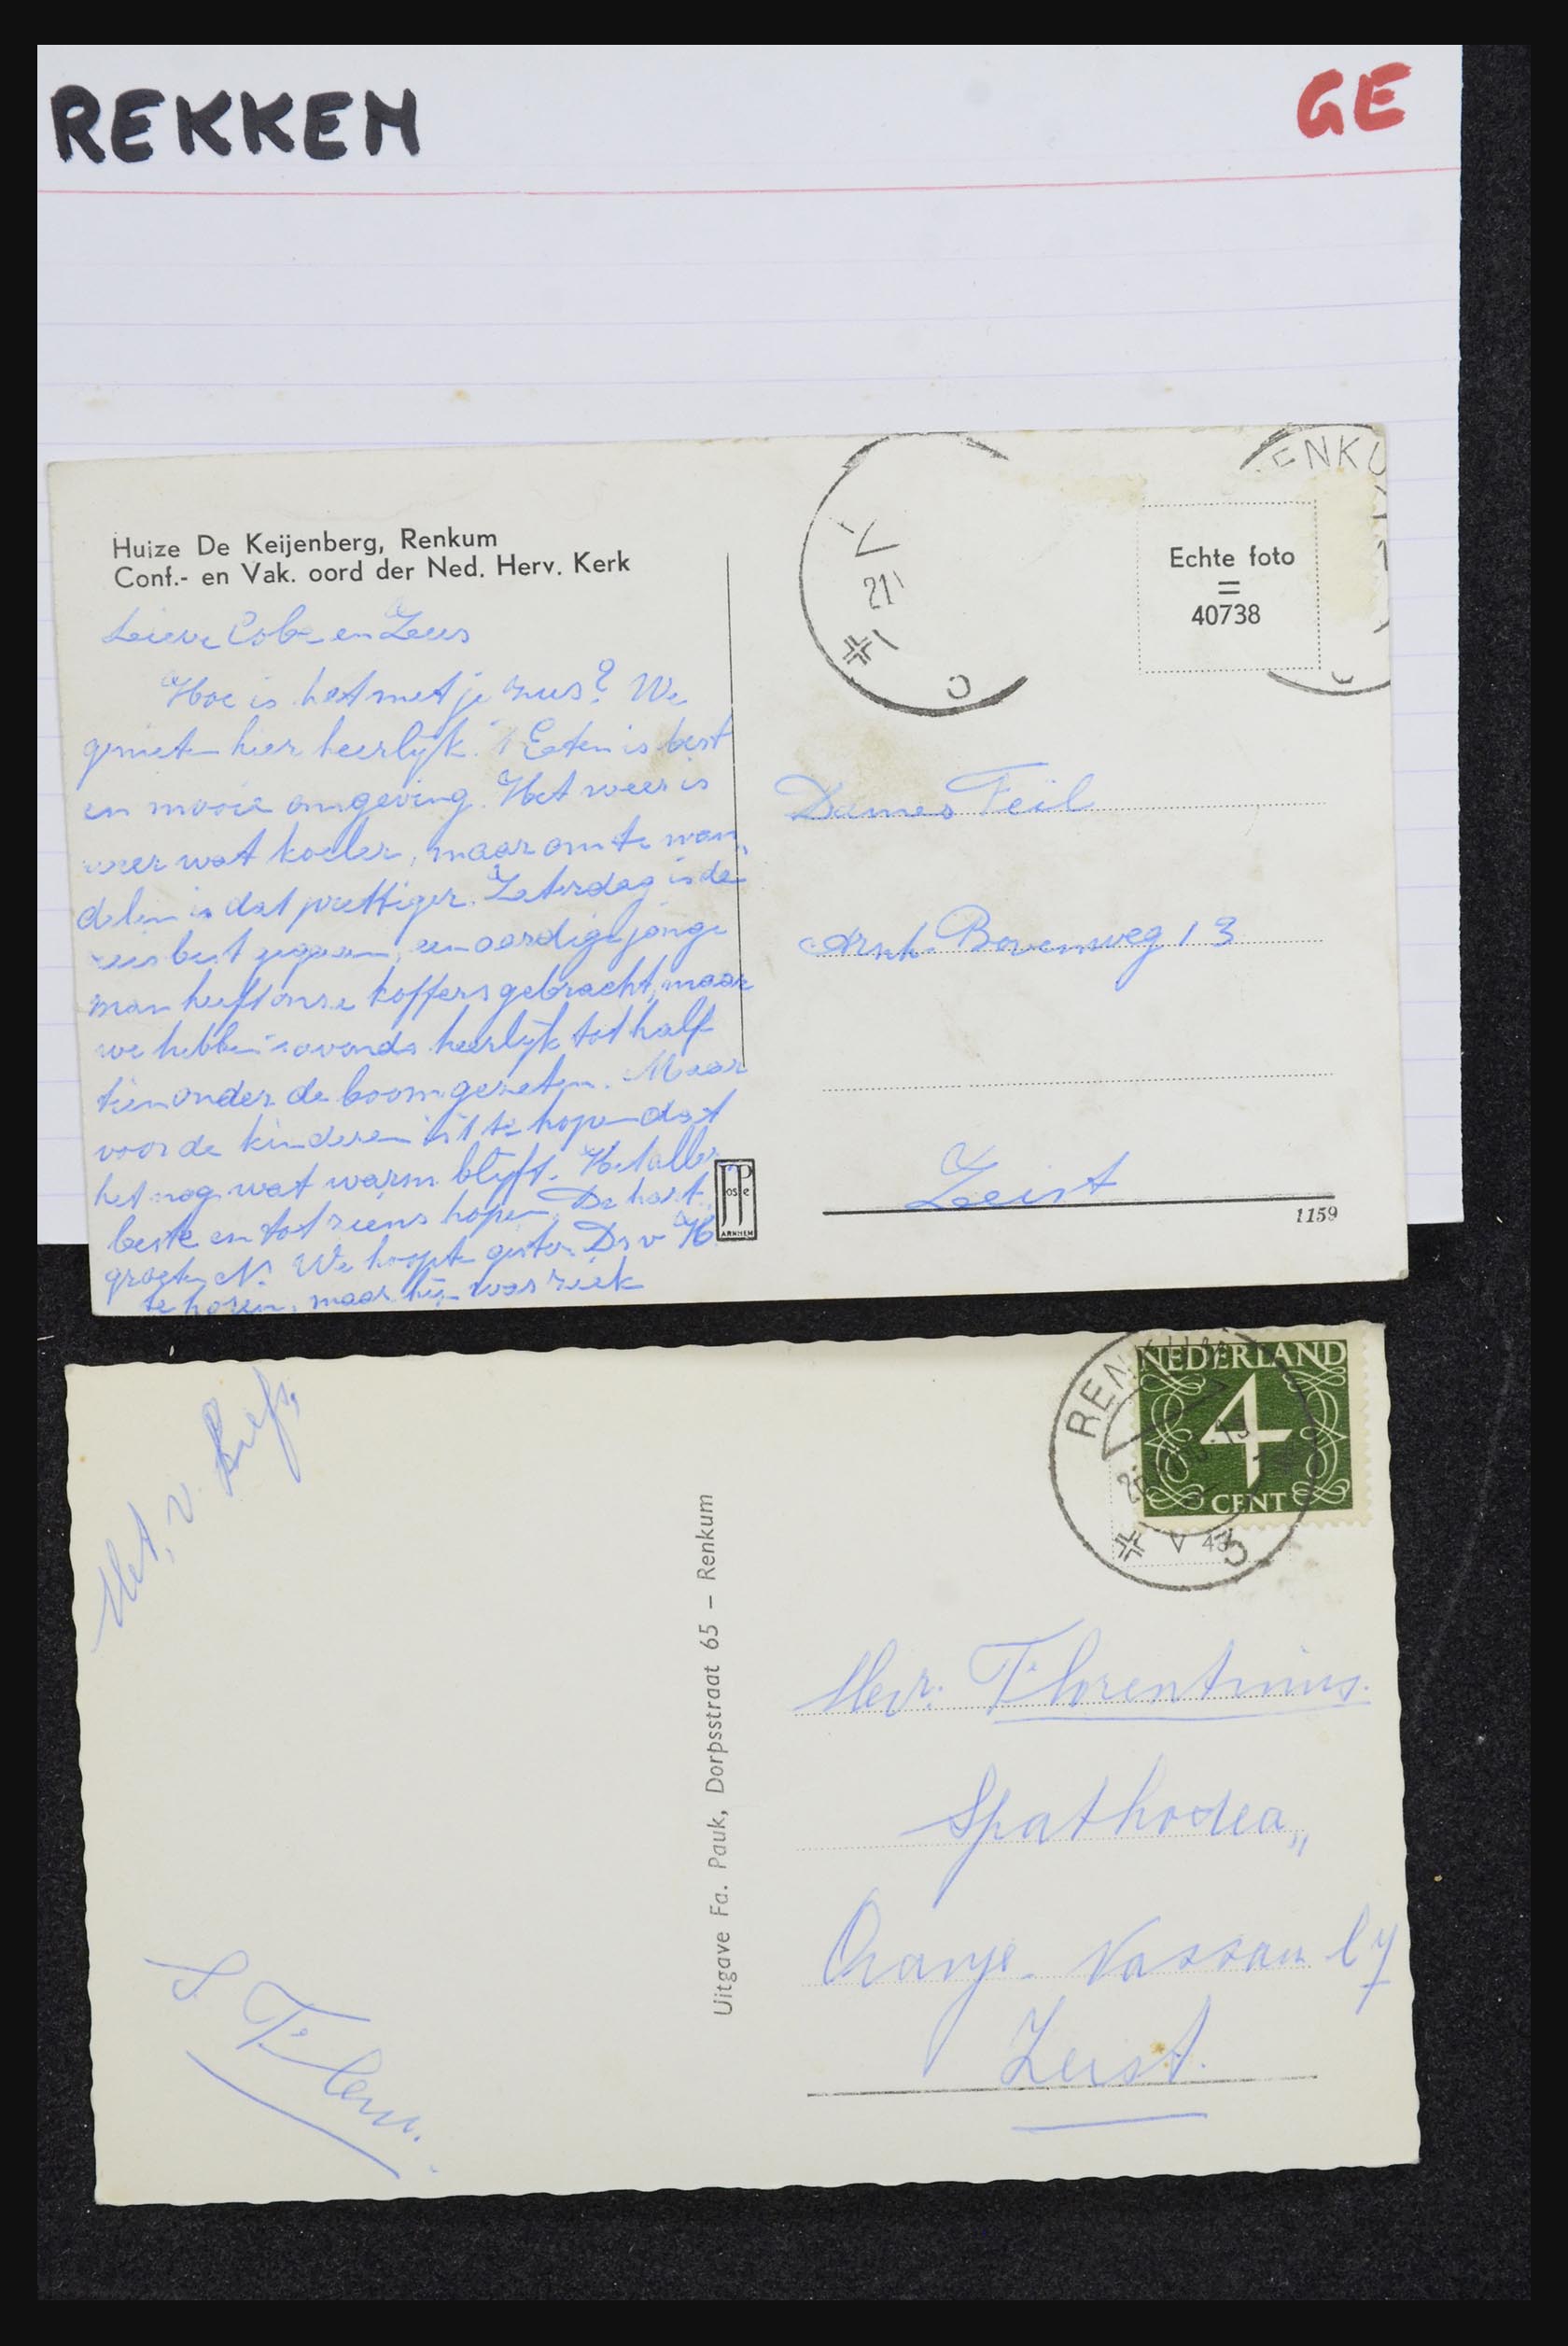 REKKEN
GE
Huize De Keijenberg, Renkum
Conf.- en Vak. oord der Ned. Herv. Kerk
ENKU
V
21
Echte foto
40738
Lieve Cobe en Zeus
Hoe is het met je zus? We
genieten hier heerlijk. Eten is best
en mooie omgeving. Het weer is
weer wat koeler, maar om te wan
delen is dat prettiger. Zaterdag is de
reis best gegaan, een aardige jonge
man heeft onze koffers gebracht, maar
we hebben 's avonds heerlijk tot half
tien onder de boom gezeten. Maar
voor de kinderen is 't te hopen dat
het nog wat warm blijft. Het aller
beste en tot ziens hopen. De hart.
groeten N. We hoopten gister Ds v H
te horen, maar hij was ziek
Dames Feil
Arnh. Bovenweg 13
Zeist
Poste
ARNHEM
1159
NEDERLAND
4
CENT
REN
V 43
3
Met v. Briefs.
Uitgave Fa. Pauk, Dorpsstraat 65 – Renkum
Mevr. Florentinus.
Spathodea„
Oranje Nassau l 7
Zeist.